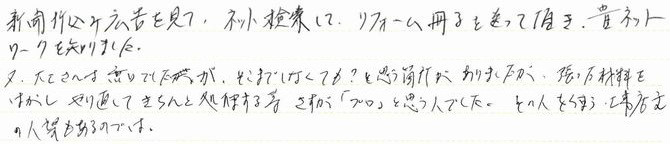 新聞折込み広告を見て、ネット検索して、リフォーム冊子を送って頂き、貴ネット
ワークを知りました。
又、大工さんは無口でしたが、そこまでしなくても？と思う箇所がありましたが、張った材料を
はがし やり直して きちんと処理する等 さすが「プロ」と思う人でした。 その人を使う工事店文
の人望もあるのでは。